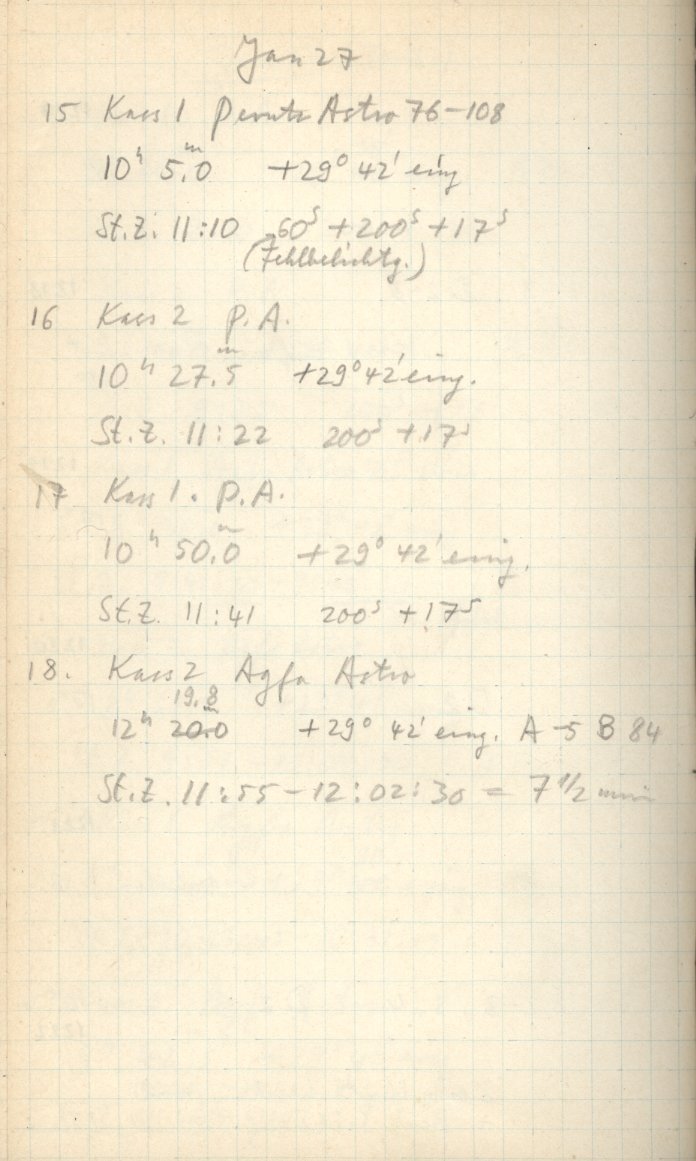 Jan 27
15 Kass 1 Perutz Astro 76-108
10h 5,0m +29° 42' eing
St.Z. 11:10 60s + 200s + 17s
(Fehlbelichtg.)
16 Kass 2 P.A.
10h 27,5m +29° 42' eing.
St.Z. 11:22 200s + 17s
17 Kass 1. P.A.
10h 50,0m +29° 42' eing.
St.Z. 11:41 200s + 17s
18. Kass 2 Agfa Astro
19,8
12h 20,0m +29° 42' eing. A -5 B 84
St.Z. 11:55 - 12:02:30 = 7 1/2 min